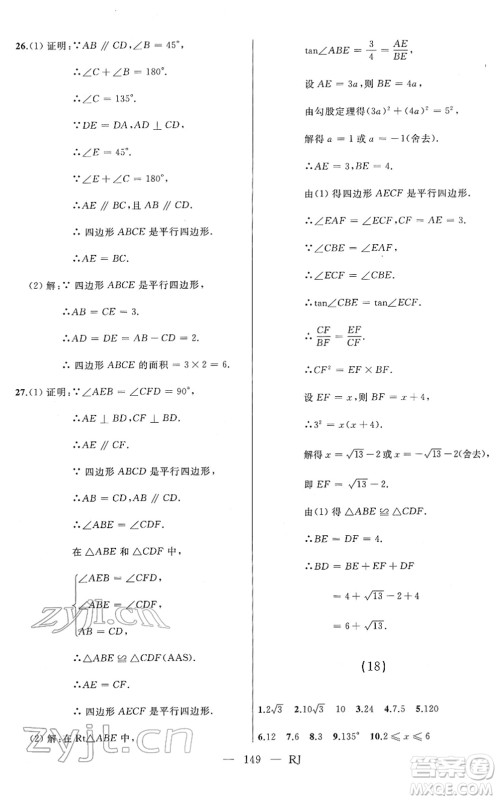 26.(1) 证明：∵AB∥CD，∠B＝45°，
∴∠C＋∠B＝180°.
∴∠C＝135°.
∵DE＝DA，AD⊥CD，
∴∠E＝45°.
∵∠E＋∠C＝180°，
∴AE∥BC，且AB∥CD.
∴四边形ABCE是平行四边形.
∴AE＝BC.
(2) 解：∵四边形ABCE是平行四边形，
∴AB＝CE＝3.
∴AD＝DE＝AB－AE＝2.
∴四边形ABCE的面积＝3×2＝6.
27.(1) 证明：∵∠AEB＝∠CFD＝90°，
∴AE⊥BD，CF⊥BD.
∴AE∥CF.
∵四边形ABCD是平行四边形，
∴AB＝CD，AB∥CD.
∴∠ABE＝∠CDF.
在△ABE和△CDF中，
∠AEB＝∠CFD，
∠ABE＝∠CDF，
AB＝CD，
∴△ABE≌△CDF(AAS).
∴AE＝CF.
∴四边形AECF是平行四边形.
(2) 解：在Rt△ABE中，
tan∠ABE＝3/4＝AE/BE，
设AE＝3a，则BE＝4a.
由勾股定理得(3a)²＋(4a)²＝5²，
解得a＝1或a＝－1(舍去).
∴AE＝3，BE＝4.
由(1)得四边形AECF是平行四边形，
∴∠EAF＝∠ECF，CF＝AE＝3.
∵∠CBE＝∠EAF，
∴∠ECF＝∠CBE.
∴tan∠CBE＝tan∠ECF.
∴CF/BF＝EF/CF.
∴CF²＝EF×BF.
设EF＝x，则BF＝x＋4，
∴3²＝x(x＋4).
解得x＝√13－2或x＝－√13－2(舍去)，
即EF＝√13－2.
由(1)得△ABE≌△CDF，
∴BE＝DF＝4.
∴BD＝BE＋EF＋DF
＝4＋√13－2＋4
＝6＋√13.
(18)
1.2√3 2.10√3 10 3.24 4.7.5 5.120
6.12 7.6 8.3 9.135° 10.2≤x≤6
— 149 — RJ
zyjl.cn
zyjl.cn
作业精灵